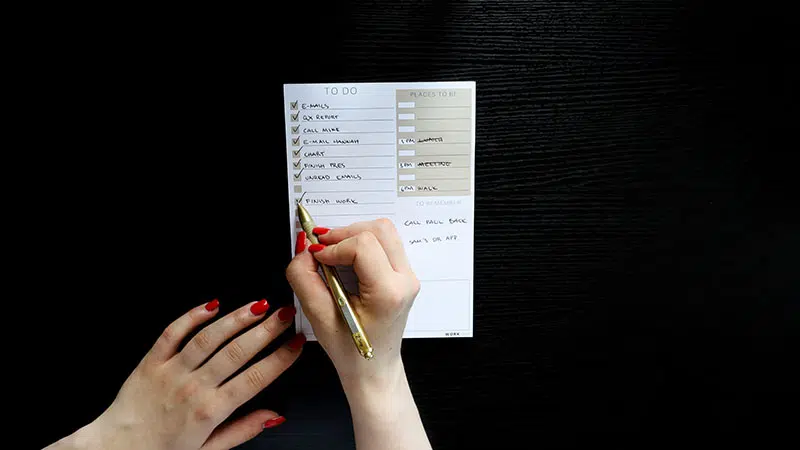 TO DO
E-MAILS
QX REPORT
CALL MIKE
E-MAIL HANNAH
CHART
FINISH PRES
UNREAD EMAILS
FINISH WORK
PLACES TO BE
1 PM LUNCH
PM MEETING
6 PM WALK
TO REMEMBER
CALL PAUL BACK
SAM'S DR APP.
WORK